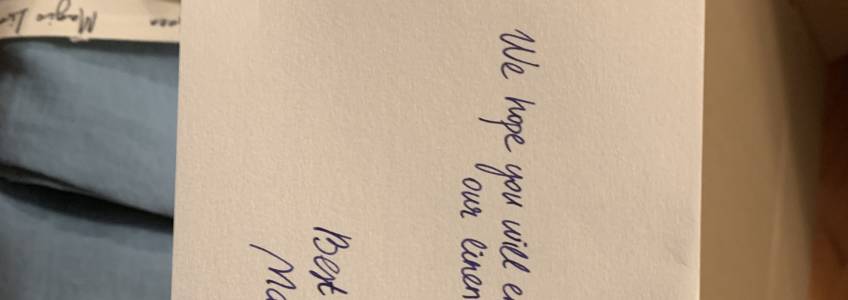 We hope you will
our linen
Best
Magic